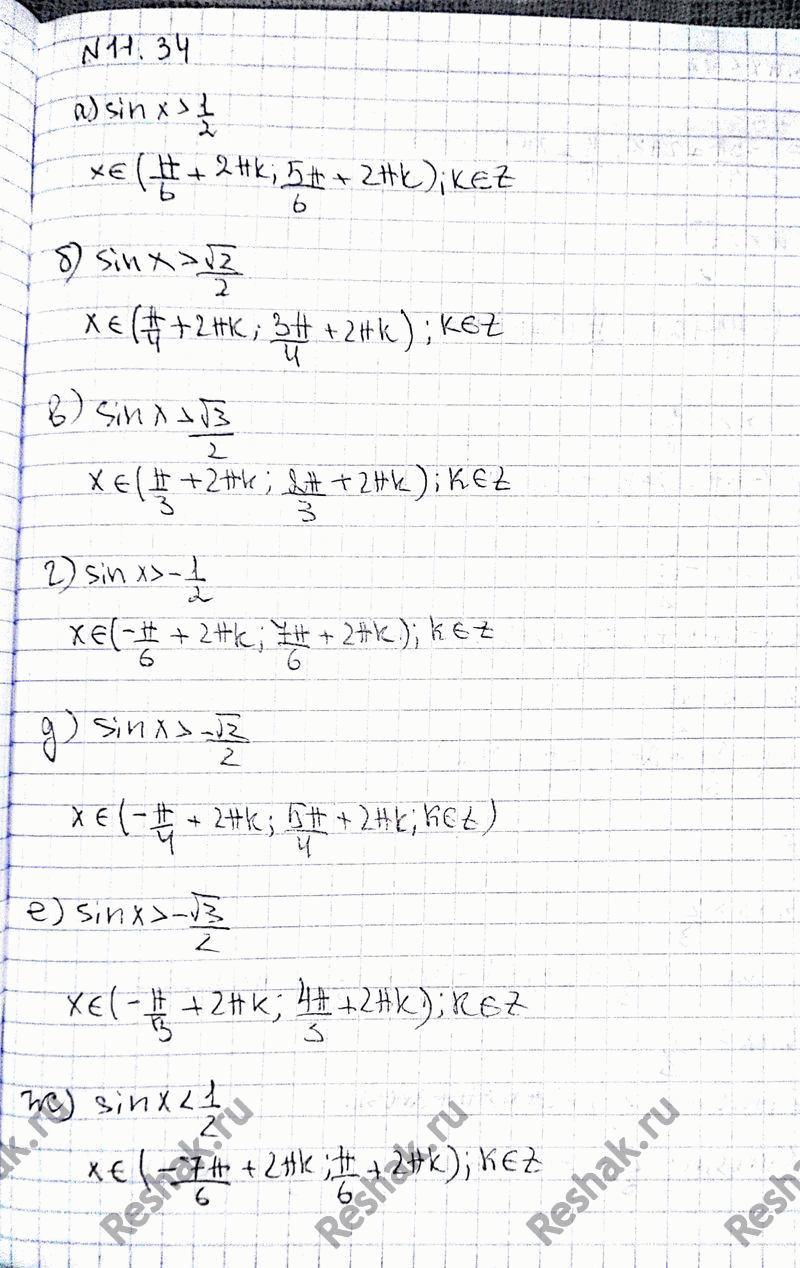 N11.34
а) sin x > 1/2
x ∈ (π/6 + 2πk; 5π/6 + 2πk); k ∈ Z
б) sin x > √2/2
x ∈ (π/4 + 2πk; 3π/4 + 2πk); k ∈ Z
в) sin x > √3/2
x ∈ (π/3 + 2πk; 2π/3 + 2πk); k ∈ Z
г) sin x > -1/2
x ∈ (-π/6 + 2πk; 7π/6 + 2πk); k ∈ Z
д) sin x > -√2/2
x ∈ (-π/4 + 2πk; 5π/4 + 2πk; k ∈ Z)
е) sin x > -√3/2
x ∈ (-π/3 + 2πk; 4π/3 + 2πk); k ∈ Z
ж) sin x < 1/2
x ∈ (-7π/6 + 2πk; π/6 + 2πk); k ∈ Z
Reshak.ru
Reshak.ru
Reshak.ru